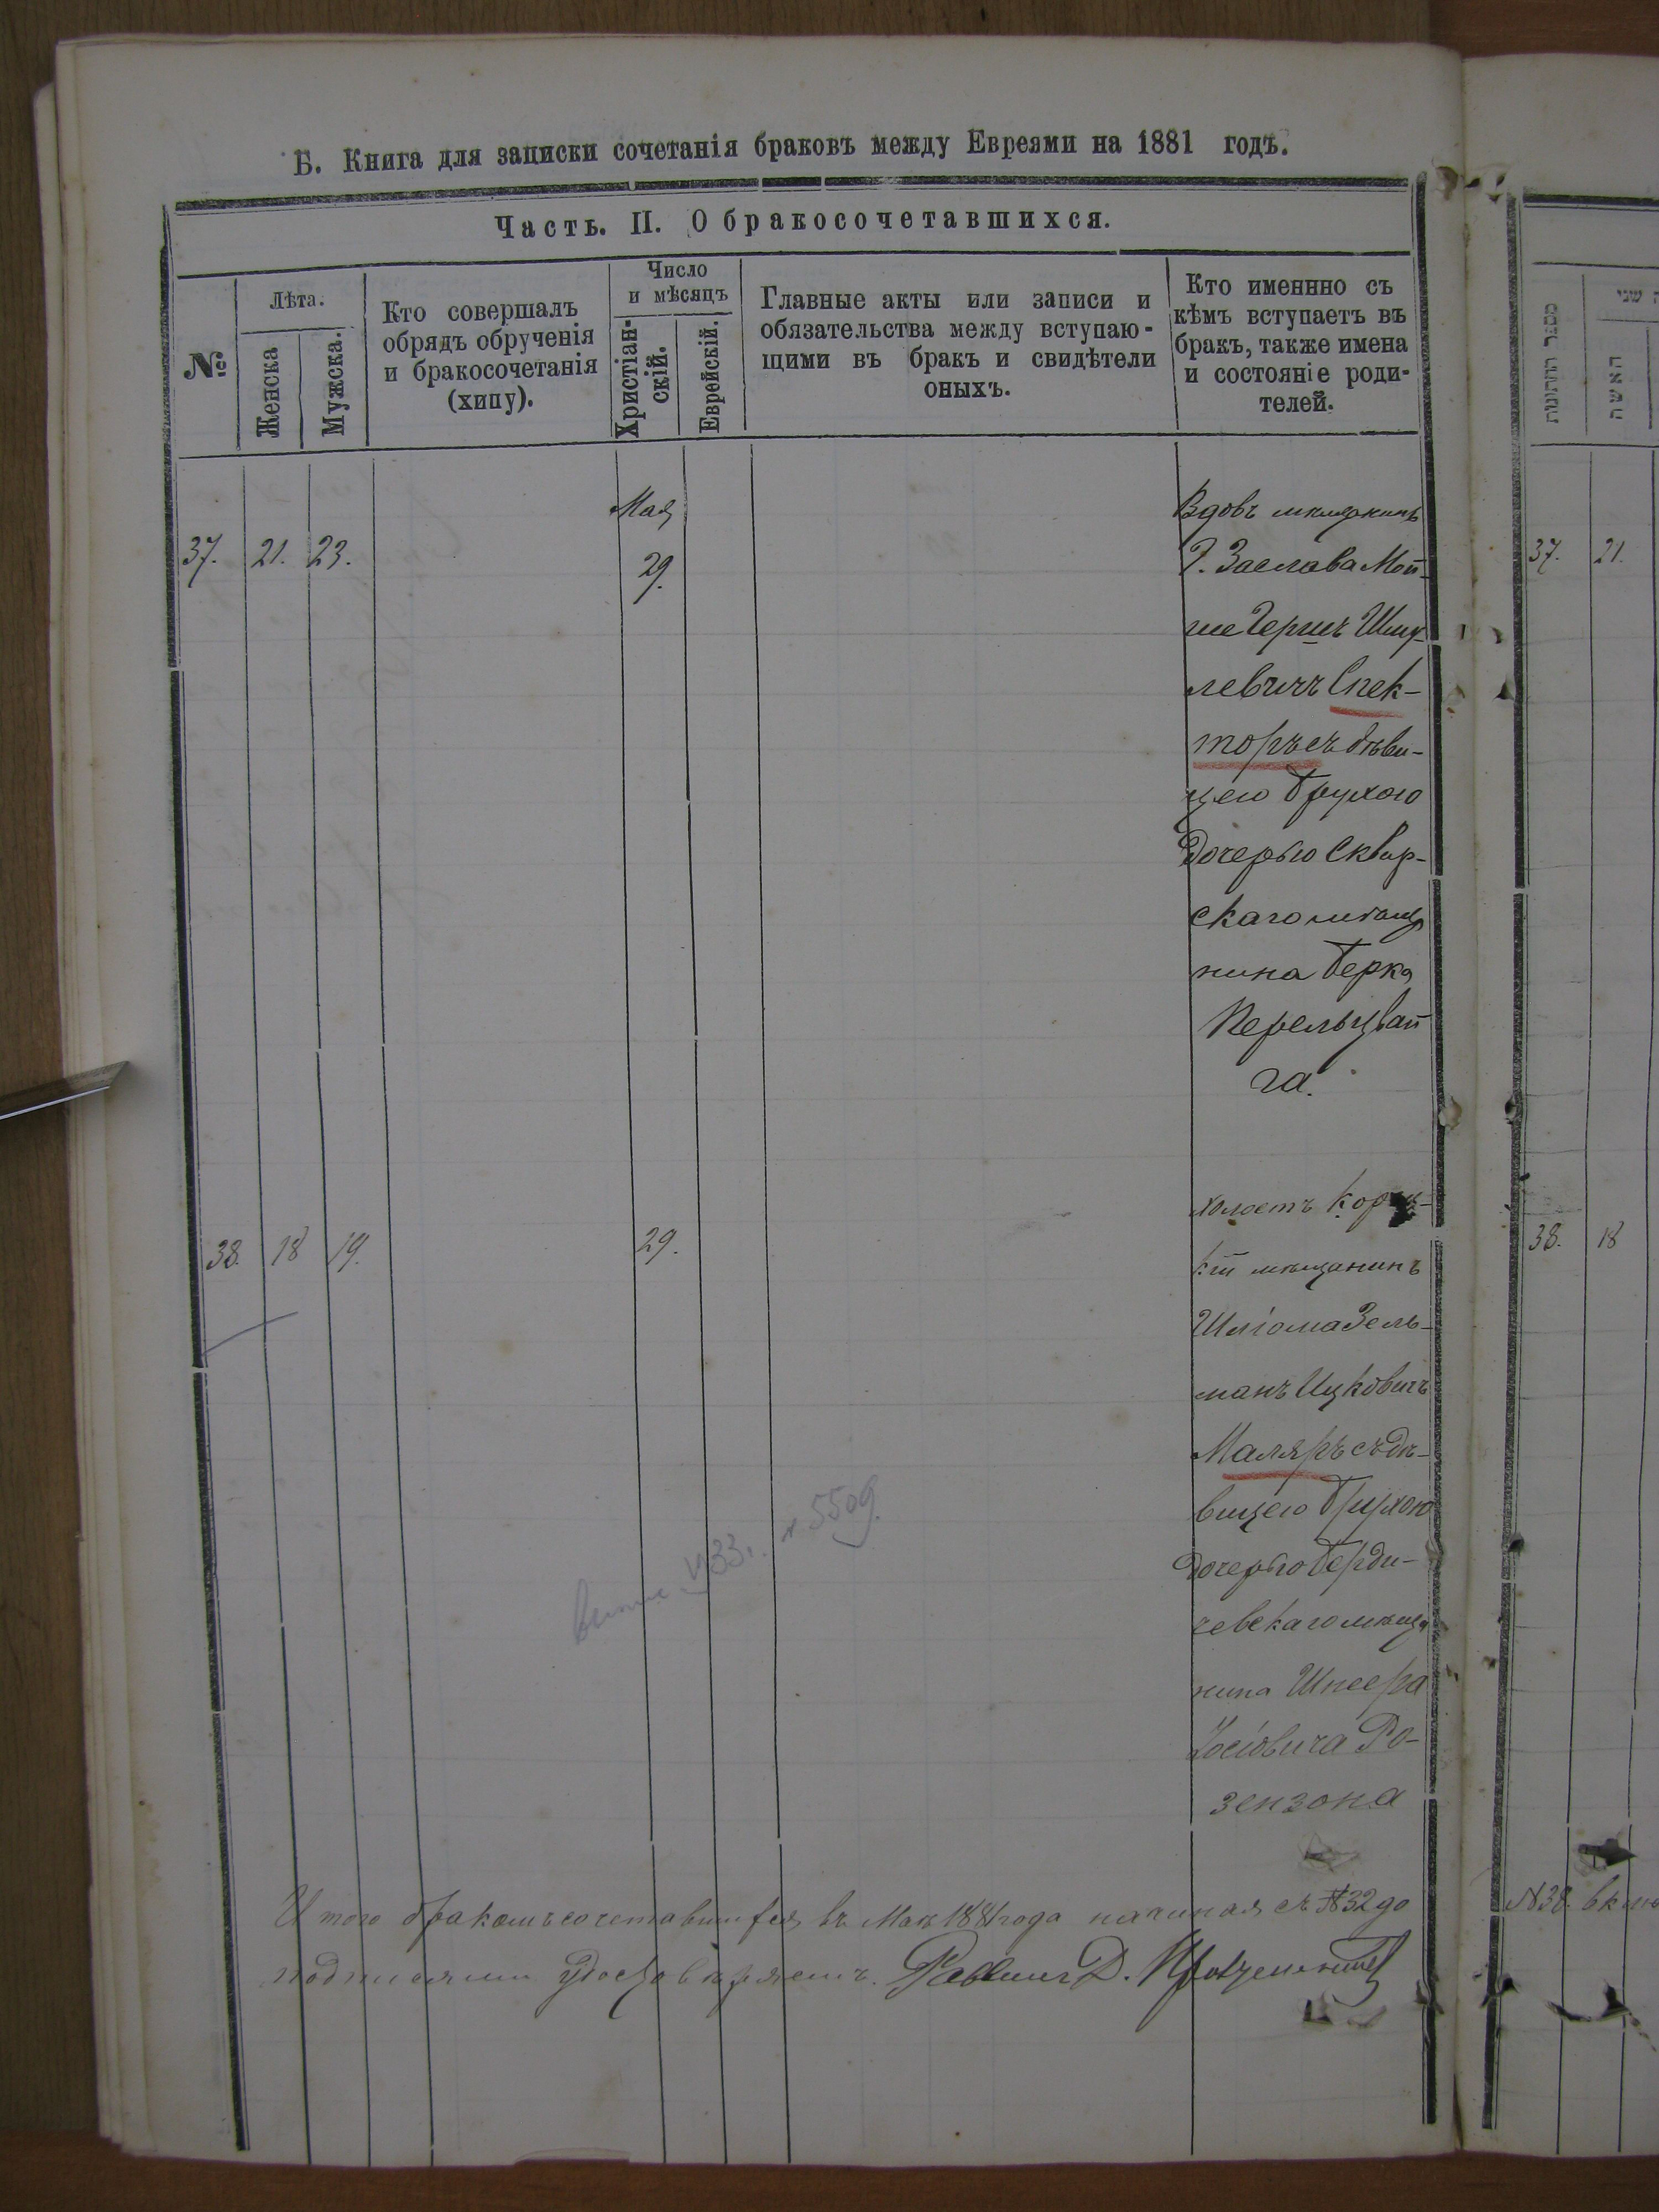 Б. Книга для записки сочетанія браковъ между Евреями на 1881 годъ.
Часть. II. О бракосочетавшихся.
№
Лѣта.
Женска
Мужска.
Кто совершалъ
обрядъ обрученія
и бракосочетанія
(хипу).
Число
и мѣсяцъ
Христіан-
скій.
Еврейскій.
Главные акты или записи и
обязательства между вступаю-
щими въ бракъ и свидѣтели
оныхъ.
Кто именнно съ
кѣмъ вступаетъ въ
бракъ, также имена
и состояніе роди-
телей.
Мая
37. 21. 23. 29.
Вдовъ мѣщанинъ
Г. Заслава Мой-
ше Гершъ Шму-
левичъ Спек-
торъ съ дѣви-
цею Брухою
дочерью Сквир-
скаго мѣща
нина Берка
Перельцвай
га.
38. 18 19. 29.
холостъ
кій мѣщанинъ
Шліома Зель-
манъ Ицковичъ
Маляръ съ дѣ-
вицею Брухою
дочерью Берди-
чевскаго мѣща
нина Шнеера
Іосіовича Ро-
зензона
1933 г. № 5509
Итого бракомъ сочетавшихся въ Маѣ 1881 года начиная съ №32 до
подписями удостовѣряемъ. Раввинъ Д.
מספר החתונות
האשה
37. 21.
38. 18
№38.